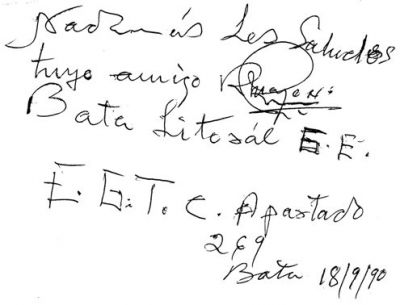 Nadmás Les Saludos
tuyo amigo
Bata Litosál G.E.
E. G. T. C. Apartado
269
Bata 18/9/90